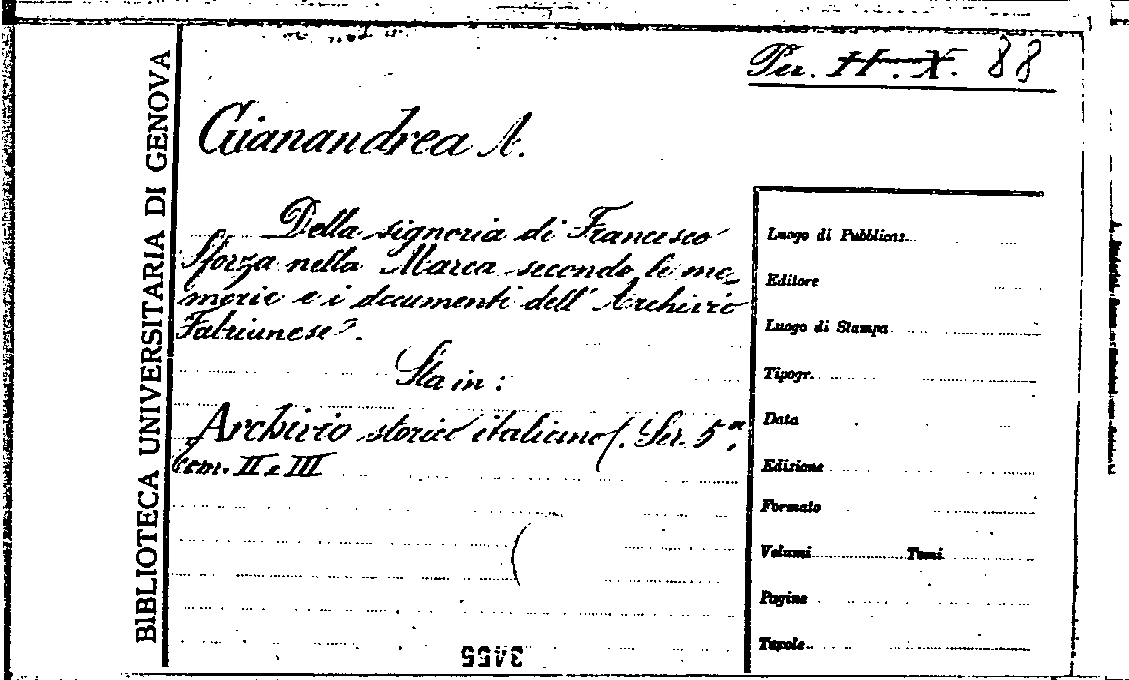 Per. II. X. 88
BIBLIOTECA UNIVERSITARIA DI GENOVA
Gianandrea A.
Della signoria di Francesco
Sforza nella Marca secondo le me-
morie e i documenti dell' Archivio
Fabrianese.
Sta in:
Archivio storico italiano (. Ser. 5ª,
tom. II e III
Luogo di Pubblicaz.
Editore
Luogo di Stampa
Tipogr.
Data
Edizione
Formato
Volumi Tomi
Pagine
Tavole
3455